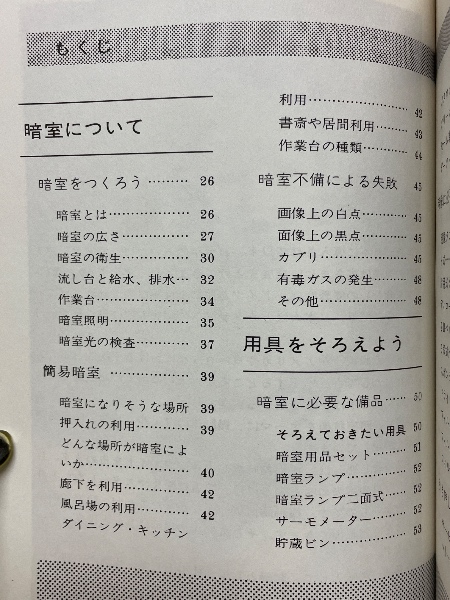 もくじ
暗室について
暗室をつくろう ……… 26
暗室とは ……………… 26
暗室の広さ …………… 27
暗室の衛生 …………… 30
流し台と給水、排水… 32
作業台 ………………… 34
暗室照明 ……………… 35
暗室光の検査 ………… 37
簡易暗室 ……………… 39
暗室になりそうな場所 39
押入れの利用 ………… 39
どんな場所が暗室によ
いか …………………… 40
廊下を利用 …………… 42
風呂場の利用 ………… 42
ダイニング・キッチン
利用 …………………… 42
書斎や居間利用 ……… 43
作業台の種類 ………… 44
暗室不備による失敗 45
画像上の白点 ………… 45
面像上の黒点 ………… 45
カブリ ………………… 45
有毒ガスの発生 ……… 48
その他 ………………… 48
用具をそろえよう
暗室に必要な備品 …… 50
そろえておきたい用具 50
暗室用品セット ……… 51
暗室ランプ …………… 52
暗室ランプ二面式 …… 52
サーモメーター ……… 52
貯蔵ビン ……………… 53